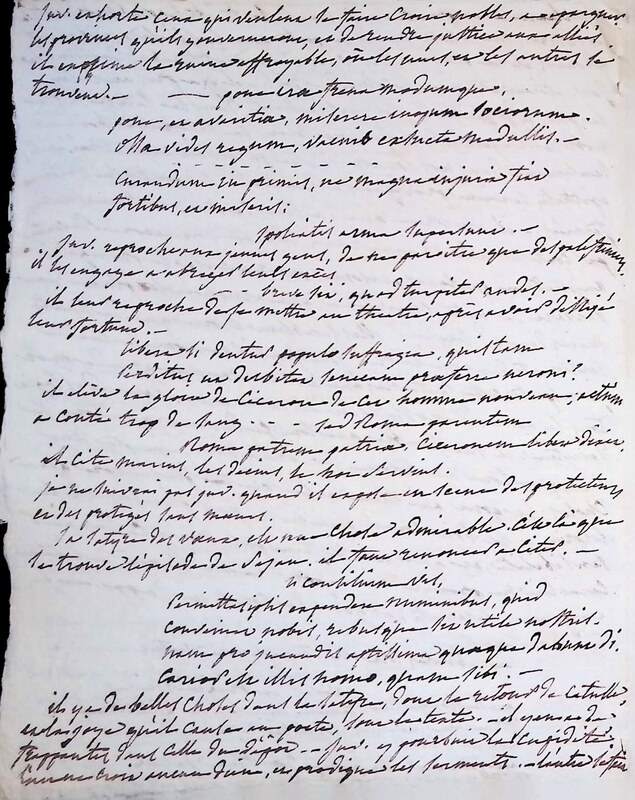 juv. exhorte ceux qui veulent se faire croire nobles, a epargner
les provinces qu'ils gouverneront, et de rendre justice aux alliés
il exprime la ruine effroyable, où les uns, et les autres se
trouvent. — — pone irae frena modumque,
pone, et avaritiae, miserere inopum sociorum.
ossa vides regum, vacuis exhucta medullis. —
curandum in primis, ne magna injuria fiat
fortibus, et miseris;
spoliatis arma supersunt. —
juv. reproche aux jeunes gens, de ne paroitre que des
il les engage a abreger leurs excès
breve sit, quod turpiter audes. —
il leur reproche de se mettre au theatre, après avoir
leur fortune. —
libera si dentur populo suffragia, quis tam
perditus ut dubitet senecam praeferre neroni?
il élève la gloire de Ciceron de cet homme nouveau,
a couté trop de sang - - - sed Roma parentem
Roma patrem patriae Ciceronem libera dixit.
il cite marius, les decius, le Roi Servius.
je ne suivrai pas juv. quand il expose en scene des protecteurs
et des protegés sans mœurs.
la satyre des vœux, est une chose admirable. C'est là que
se trouve l'épisode de Sejan, il faut renoncer a citer. —
si consilium vis,
permittes ipsis expendere numinibus, quid
conveniat nobis, rebusque sit utile nostris.
nam pro jucundis aptissima quaeque dabunt di.
carior est illis homo, quam sibi. —
il y a de belles choses dans la satyre, dont le retour de Catulle
et la joye qu'il cause au poete, sont le texte. — il y en a de
frappantes dans celle du dépôt. — juv. y poursuit la cupidité
croit aucun dieu, et prodigue les serments. —